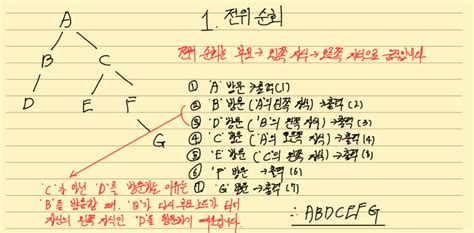 1. 전위 순회
전위 순회는 부모 → 왼쪽 자식 → 오른쪽 자식으로 움직입니다
A
B C
D E F
G
① 'A' 방문 → 출력 (1)
② 'B' 방문 ('A'의 왼쪽 자식) → 출력 (2)
③ 'D' 방문 ('B'의 왼쪽 자식) → 출력 (3)
④ 'C' 방문 ('A'의 오른쪽 자식) → 출력 (4)
⑤ 'E' 방문 ('C'의 왼쪽 자식) → 출력 (5)
⑥ 'F' 방문 → 출력 (6)
⑦ 'G' 방문 → 출력 (7)
'C'가 아닌 'D'를 방문하는 이유는
'B'를 방문할 때, 'B'가 다시 부모 노드가 되어
자신의 왼쪽 자식인 'D'를 방문하기 때문입니다.
∴ ABDCEFG